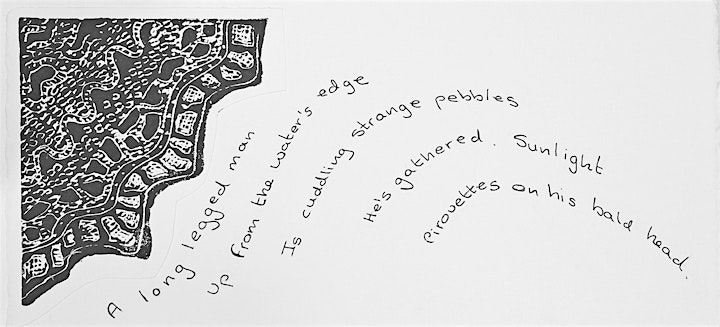 A long legged man
up from the water's edge
Is cuddling strange pebbles
He's gathered. Sunlight
pirouettes on his bald head.